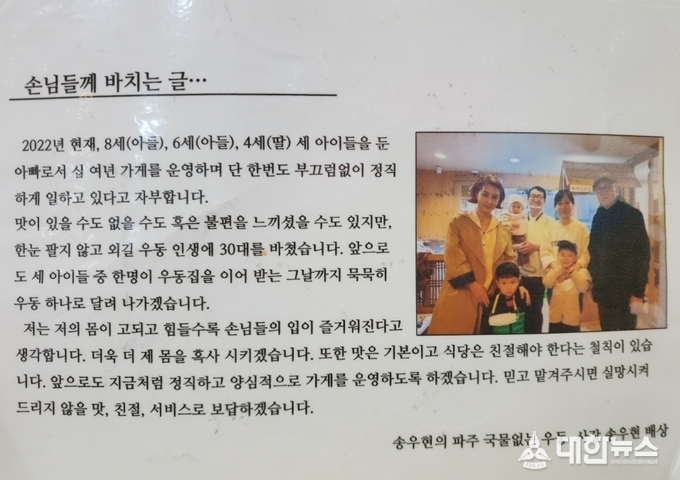 손님들께 바치는 글…
2022년 현재, 8세(아들), 6세(아들), 4세(딸) 세 아이들을 둔
아빠로서 십 여년 가게를 운영하며 단 한번도 부끄럼없이 정직
하게 일하고 있다고 자부합니다.
맛이 있을 수도 없을 수도 혹은 불편을 느끼셨을 수도 있지만,
한눈 팔지 않고 외길 우동 인생에 30대를 바쳤습니다. 앞으로
도 세 아이들 중 한명이 우동집을 이어 받는 그날까지 묵묵히
우동 하나로 달려 나가겠습니다.
저는 저의 몸이 고되고 힘들수록 손님들의 입이 즐거워진다고
생각합니다. 더욱 더 제 몸을 혹사 시키겠습니다. 또한 맛은 기본이고 식당은 친절해야 한다는 철칙이 있습
니다. 앞으로도 지금처럼 정직하고 양심적으로 가게를 운영하도록 하겠습니다. 믿고 맡겨주시면 실망시켜
드리지 않을 맛, 친절, 서비스로 보답하겠습니다.
송우현의 파주 국물없는 우동, 사장 송우현 배상
대한뉴스